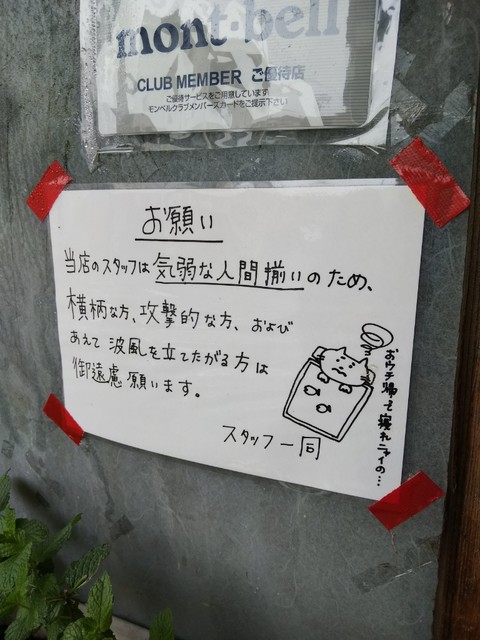 mont-bell
CLUB MEMBER ご優待店
ご優待サービスをご用意しています
モンベルクラブメンバーズカードをご提示下さい
お願い
当店のスタッフは気弱な人間揃いのため、
横柄な方、攻撃的な方、および
あえて波風を立てたがる方は
御遠慮願います。
スタッフ一同
おウチ帰って寝れニャイの…